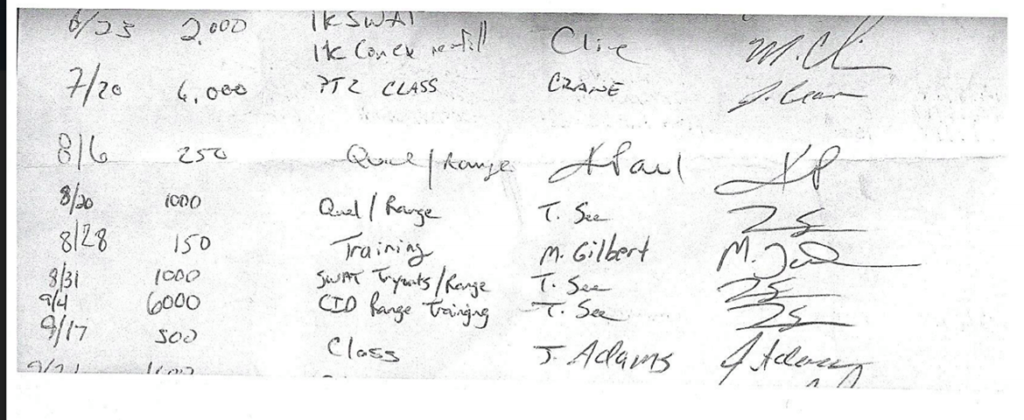 6/23 2,000 1k SWAT Clive M. Cli
1k Conex refill
7/20 6,000 PTZ CLASS CRANE J. Cran
8/6 250 Qual/Range KPaul KP
8/20 1000 Qual/Range T. See ZS
8/28 150 Training M. Gilbert M.
8/31 1000 SWAT Tryouts/Range T. See ZS
9/4 6000 CID Range Training T. See ZS
9/17 500 Class J. Adams J Adams